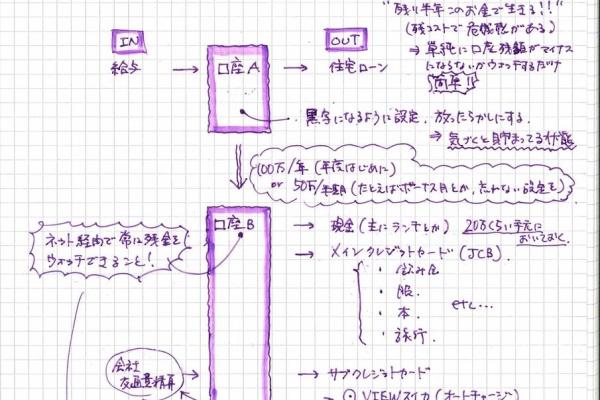 "残り半年このお金で生きる!!"
(残コストで危機感がある)
⇒ 単純に口座残額がマイナス
にならないかウォッチするだけ
簡単!!
IN
給与 →
口座A
OUT
→ 住宅ローン
・黒字になるように設定、放ったらかしにする。
⇒ 気づくと貯まってる状態
100万/年 (年度はじめに)
or 50万/半期 (たとえばボーナス月とか、忘れない設定を)
口座B
ネット経由で常に残金を
ウォッチできること!
→ 現金 (主にランチとか) 20万くらい手元に
おいておく。
→ メインクレジットカード (JCB)
・飲み屋
・服
・本
・旅行
etc...
会社
交通費精算
→ サブクレジットカード
VIEWスイカ (オートチャージ)